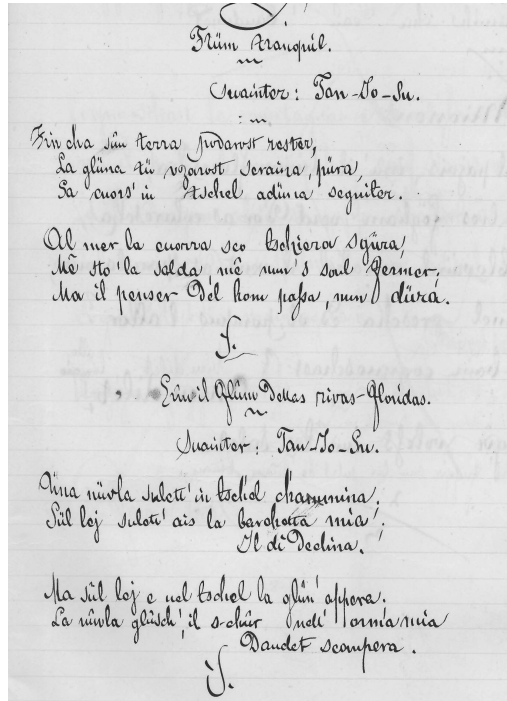 Flüm tranquil.
Suainter: Tan-Jo-Su.
Fin cha sün terra podarost rester,
La glüna tü vzarost seraina, püra,
Sa cuors' in tschel adüna seguiter.
Al mer la cuorra sco tschiera sgüra,
Mê sto'la salda nië nun's soul fermer,
Ma il penser del hom passa, nun düra.
S.
Sün il flüm dellas rivas floridas.
Suainter: Tan-Jo-Su.
Üna nüvla sulett' in tschel chammina.
Sül lej sulett' ais la barchetta mia!
Il di declina!
Ma sül lej e nel tschel la glün' appera.
La nüvla glüsch', il s-chür nell' orma mia
Dandet scompera.
S.